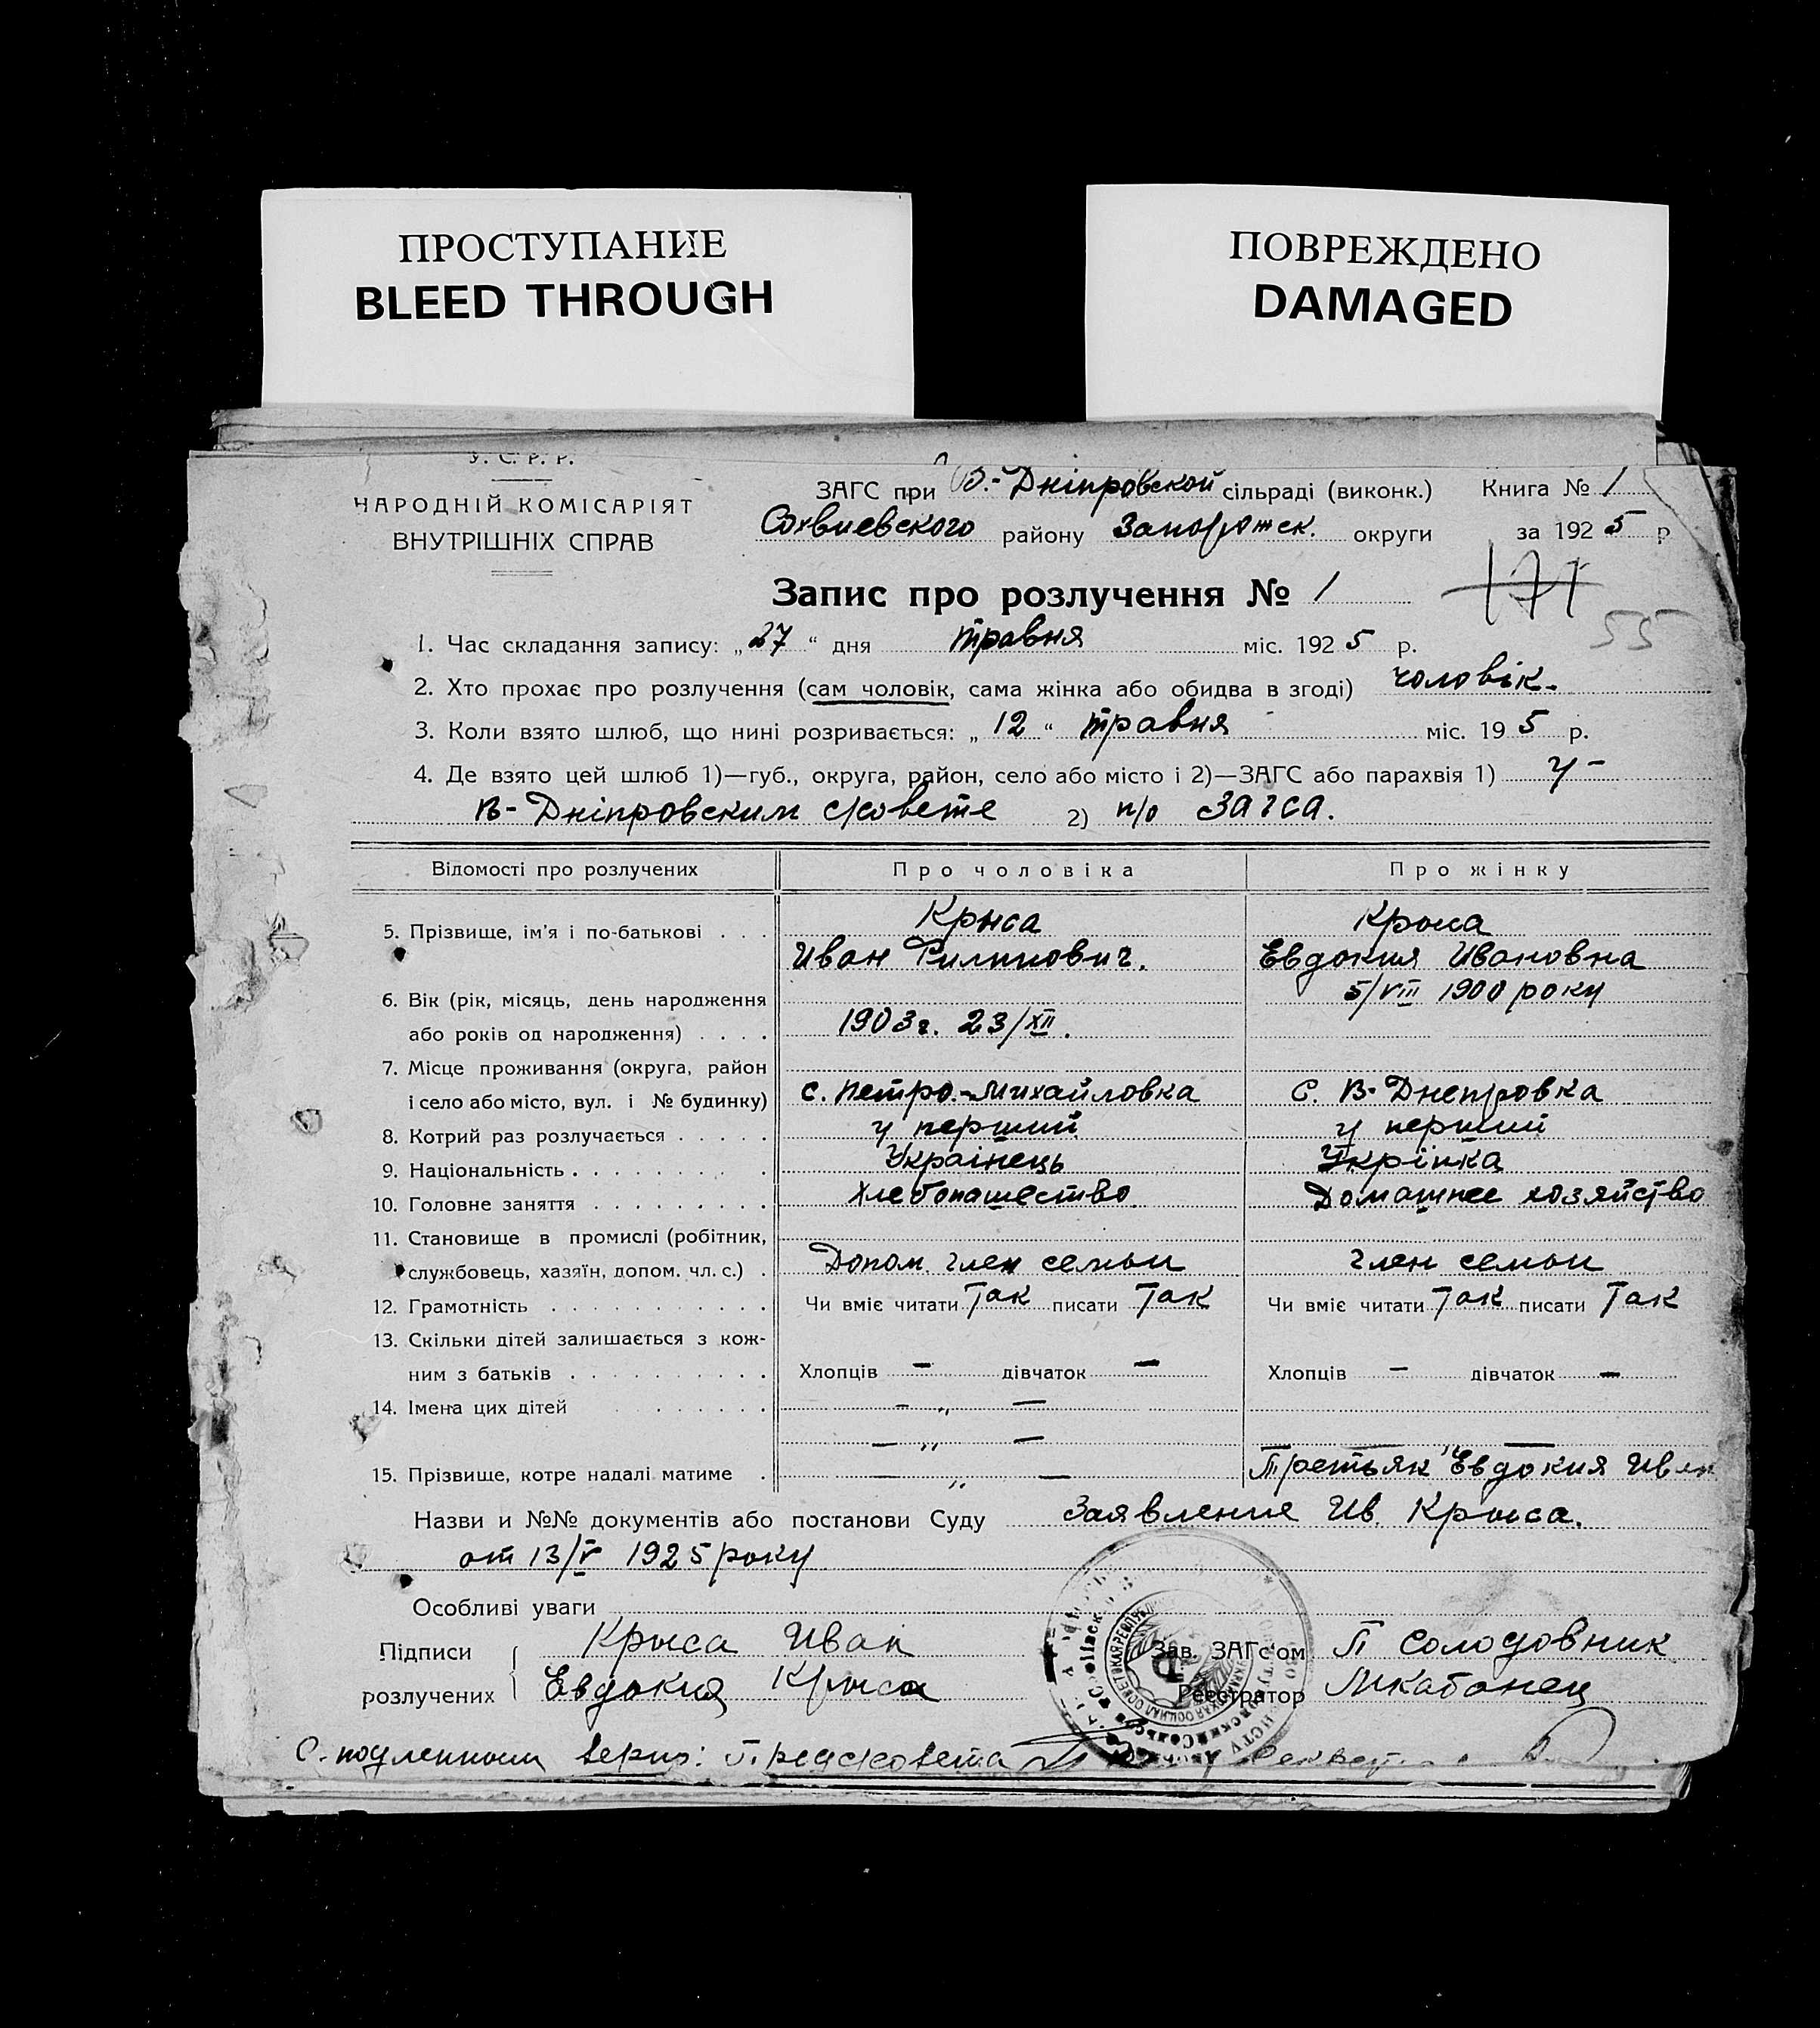 ПРОСТУПАНИЕ
BLEED THROUGH
ПОВРЕЖДЕНО
DAMAGED
У. С. Р. Р.
НАРОДНІЙ КОМІСАРІЯТ
ВНУТРІШНІХ СПРАВ
ЗАГС при В.-Дніпровской сільраді (виконк.) Книга № 1
Софиевского району Запорожск. округи за 1925 р
Запис про розлучення № 1
171
55
1. Час складання запису: „27“ дня травня міс. 1925 р.
2. Хто прохає про розлучення (сам чоловік, сама жінка або обидва в згоді) чоловік.
3. Коли взято шлюб, що нині розривається: „12“ травня міс. 195 р.
4. Де взято цей шлюб 1)—губ., округа, район, село або місто і 2)—ЗАГС або парахвія 1) у -
В-Дніпровским 2) п/о Загса.
Відомості про розлучених Про чоловіка Про жінку
5. Прізвище, ім'я і по-батькові . . . Крыса Крыса
Иван Филипович. Евдокия Ивановна
6. Вік (рік, місяць, день народження 5/VIII 1900 року
або років од народження) . . . . 1903 г. 23/XII.
7. Місце проживання (округа, район
і село або місто, вул. і № будинку) с. Петро.-Михайловка С. В-Днепровка
8. Котрий раз розлучається . . . . . у перший у перший
9. Національність . . . . . . . . . . Українець Укрінка
10. Головне заняття . . . . . . . . . Хлебопашество Домашнее хозяйство
11. Становище в промислі (робітник,
службовець, хазяїн, допом. чл. с.) . Допом. член семьи член семьи
12. Грамотність . . . . . . . . . . . Чи вміє читати Так писати Так Чи вміє читати Так писати Так
13. Скільки дітей залишається з кож-
ним з батьків . . . . . . . . . . Хлопців — дівчаток — Хлопців — дівчаток —
14. Імена цих дітей . . . . . . . — „ —
— „ — — „ —
15. Прізвище, котре надалі матиме . — „ — Третьяк Евдокия Иван
Назви и №№ документів або постанови Суду Заявление Ив. Крыса.
от 13/V 1925 року
Особливі уваги
Підписи Крыса Иван Зав. ЗАГс'ом П Солодовник
розлучених Евдокия Крыса Реєстратор
С. подленным верно: Предсовета